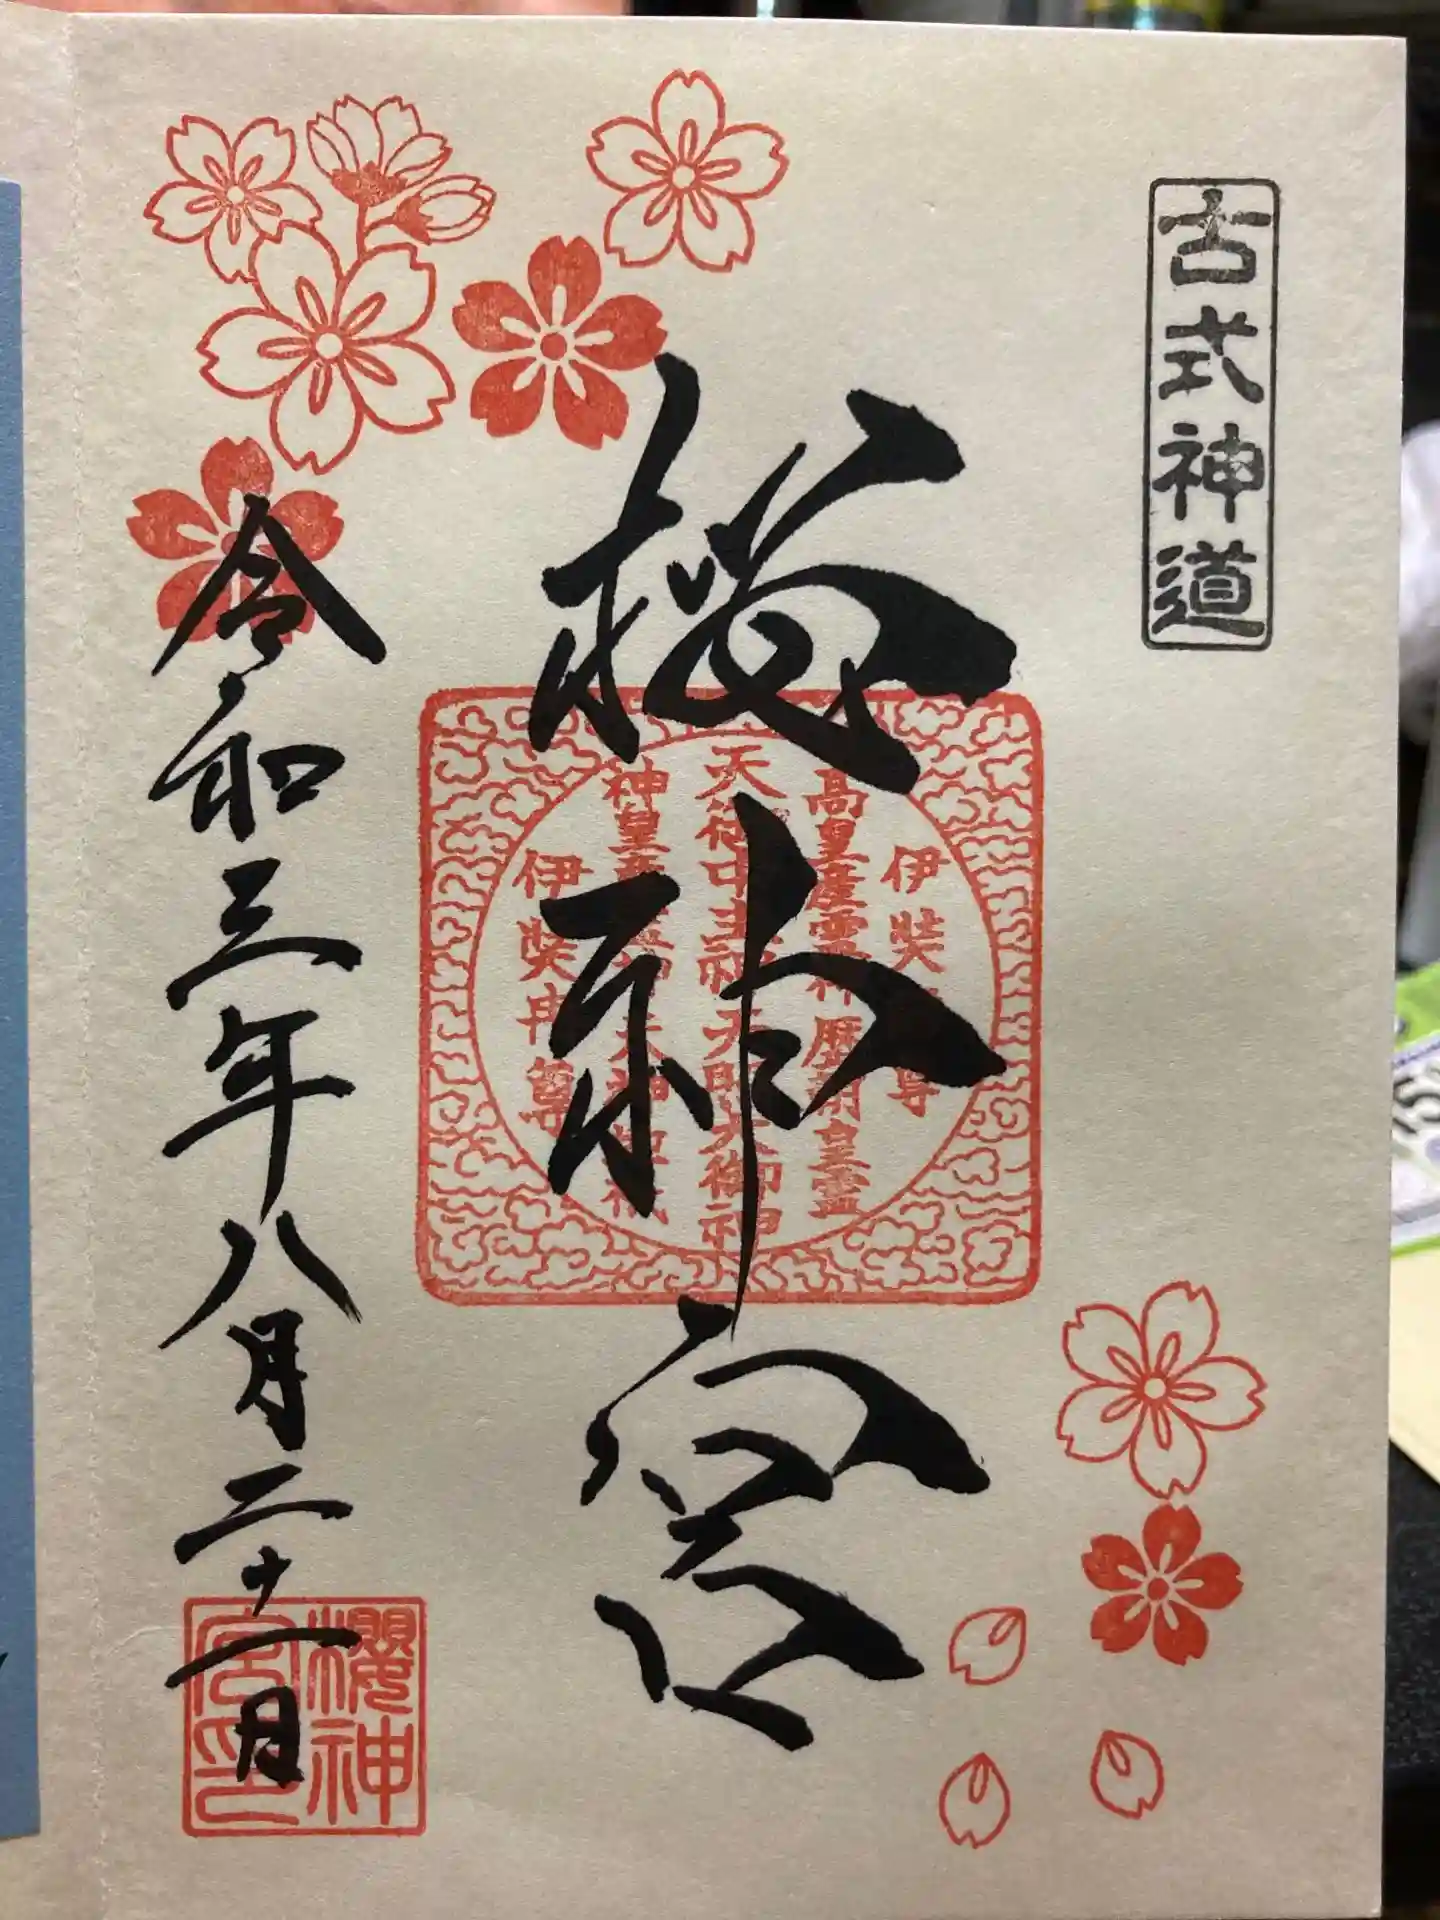 古式神道
桜神宮
伊弉尊
高皇産霊神歴朝皇霊
天御中主神天照大御神
神皇産
伊弉冉尊
令和三年八月二十一日
櫻神
宮印